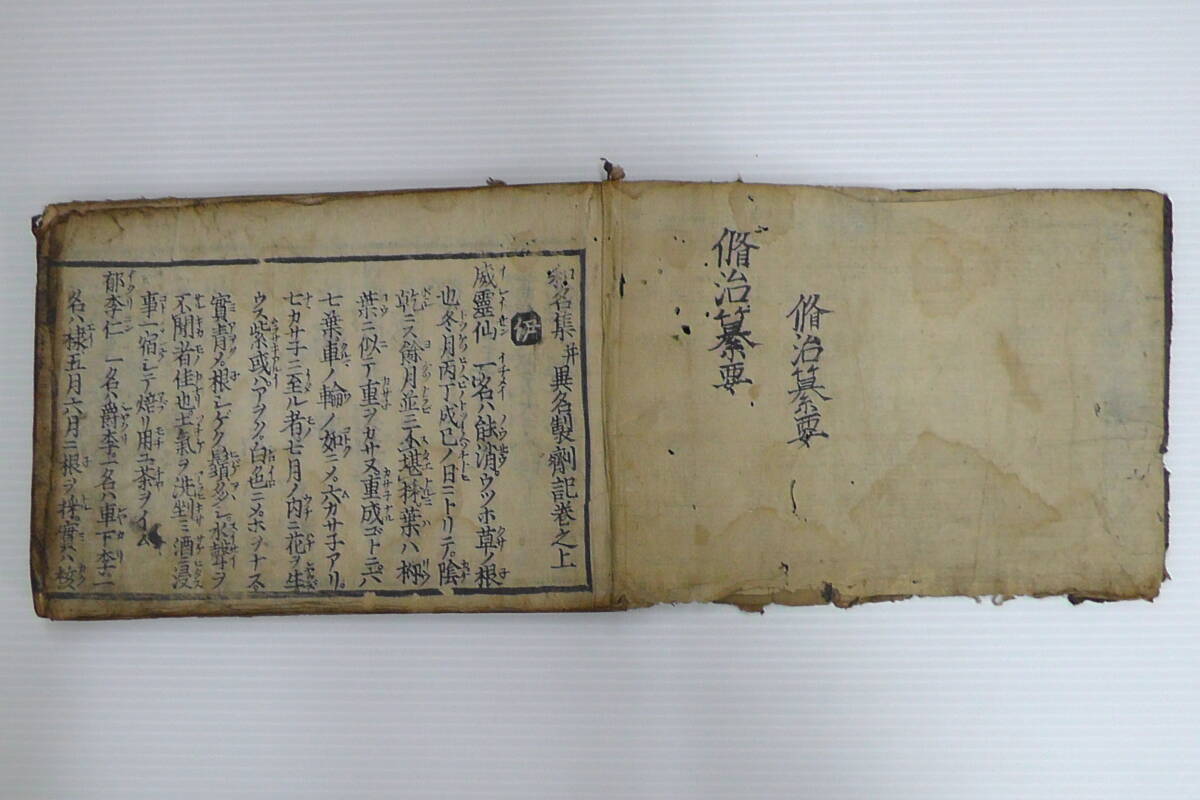 脩治纂要
脩治纂要
和名集并異名製劑記卷之上
伊
威靈仙 一名ハ能消ウツホ草ノ根
也冬月丙丁戊己ノ日ニトリテ陰
乾ニス餘月並ニ不堪採葉ハ柳
葉ニ似テ重ヲカサヌ重成コト六
七葉車ノ輪ノ如ニメ六カサ子アリ
七カサ子ニ至ル者七月ノ内ニ花ヲ生
ウス紫或ハアヲク白色ニメホヲナス
實青メ根シゲク鬚多シ水聲ヲ
不聞者佳也土氣ヲ洗
酒浸
事一宿シテ焙リ用ユ茶ヲイム
郁李仁 一名ハ爵李一名ハ車下李一
名ハ棣五月六月ニ根ヲ採實ハ核